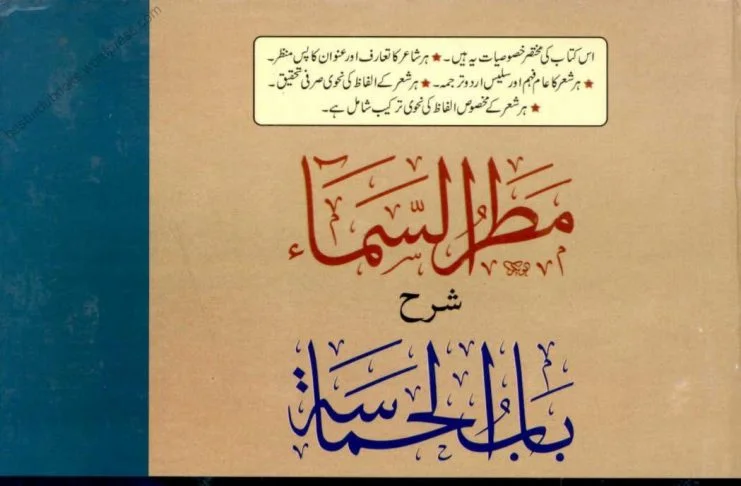 اس کتاب کی مختصر خصوصیات یہ ہیں۔ ★ ہر شاعر کا تعارف اور عنوان کا پس منظر۔
★ ہر شعر کا عام فہم اور سلیس اردو ترجمہ۔ ★ ہر شعر کے الفاظ کی نحوی صرفی تحقیق۔
★ ہر شعر کے مخصوص الفاظ کی نحوی ترکیب شامل ہے۔
مَطَرُ السَّمَآء
شرح
بَابُ الحماسة